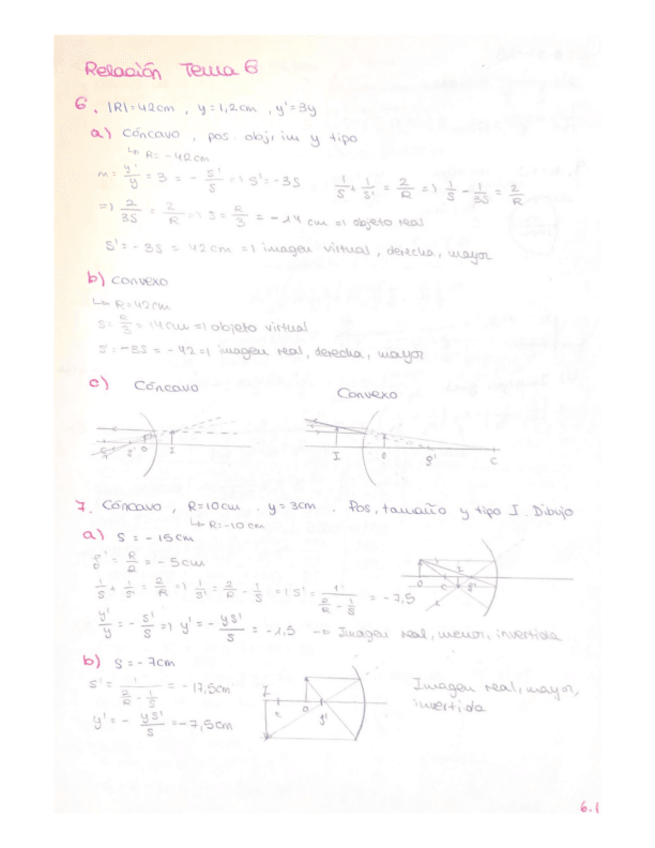 Relación Tema 6
6. |R|=42cm , y=1,2cm , y'=3y
a) Cóncavo , pos. obj, im y tipo
↳ R=-42cm
m = y'/y = 3 = - s'/s => s'=-3s   1/s + 1/s' = 2/R => 1/s - 1/3s = 2/R
=> 2/3s = 2/R => s = R/3 = -14 cm => objeto real
s'=-3s = 42cm => imagen virtual, derecha, mayor
b) Convexo
↳ R=42cm
s = R/3 = 14cm => objeto virtual
s'=-3s = -42 => imagen real, derecha, mayor
c) Cóncavo   Convexo
C f' O I   I O f' C
7. Cóncavo , R=10cm . y=3cm . Pos, tamaño y tipo I. Dibujo
↳ R=-10cm
a) s = -15cm
f' = R/2 = -5cm
1/s + 1/s' = 2/R => 1/s' = 2/R - 1/s => s' = 1/(2/R - 1/s) = -7,5
O C I f'
y'/y = - s'/s => y' = - ys'/s = -1,5 → Imagen real, menor, invertida
b) s = -7cm
s' = 1/(2/R - 1/s) = -17,5cm
I C O f'
Imagen real, mayor,
invertida
y' = - ys'/s = -7,5cm
6.1